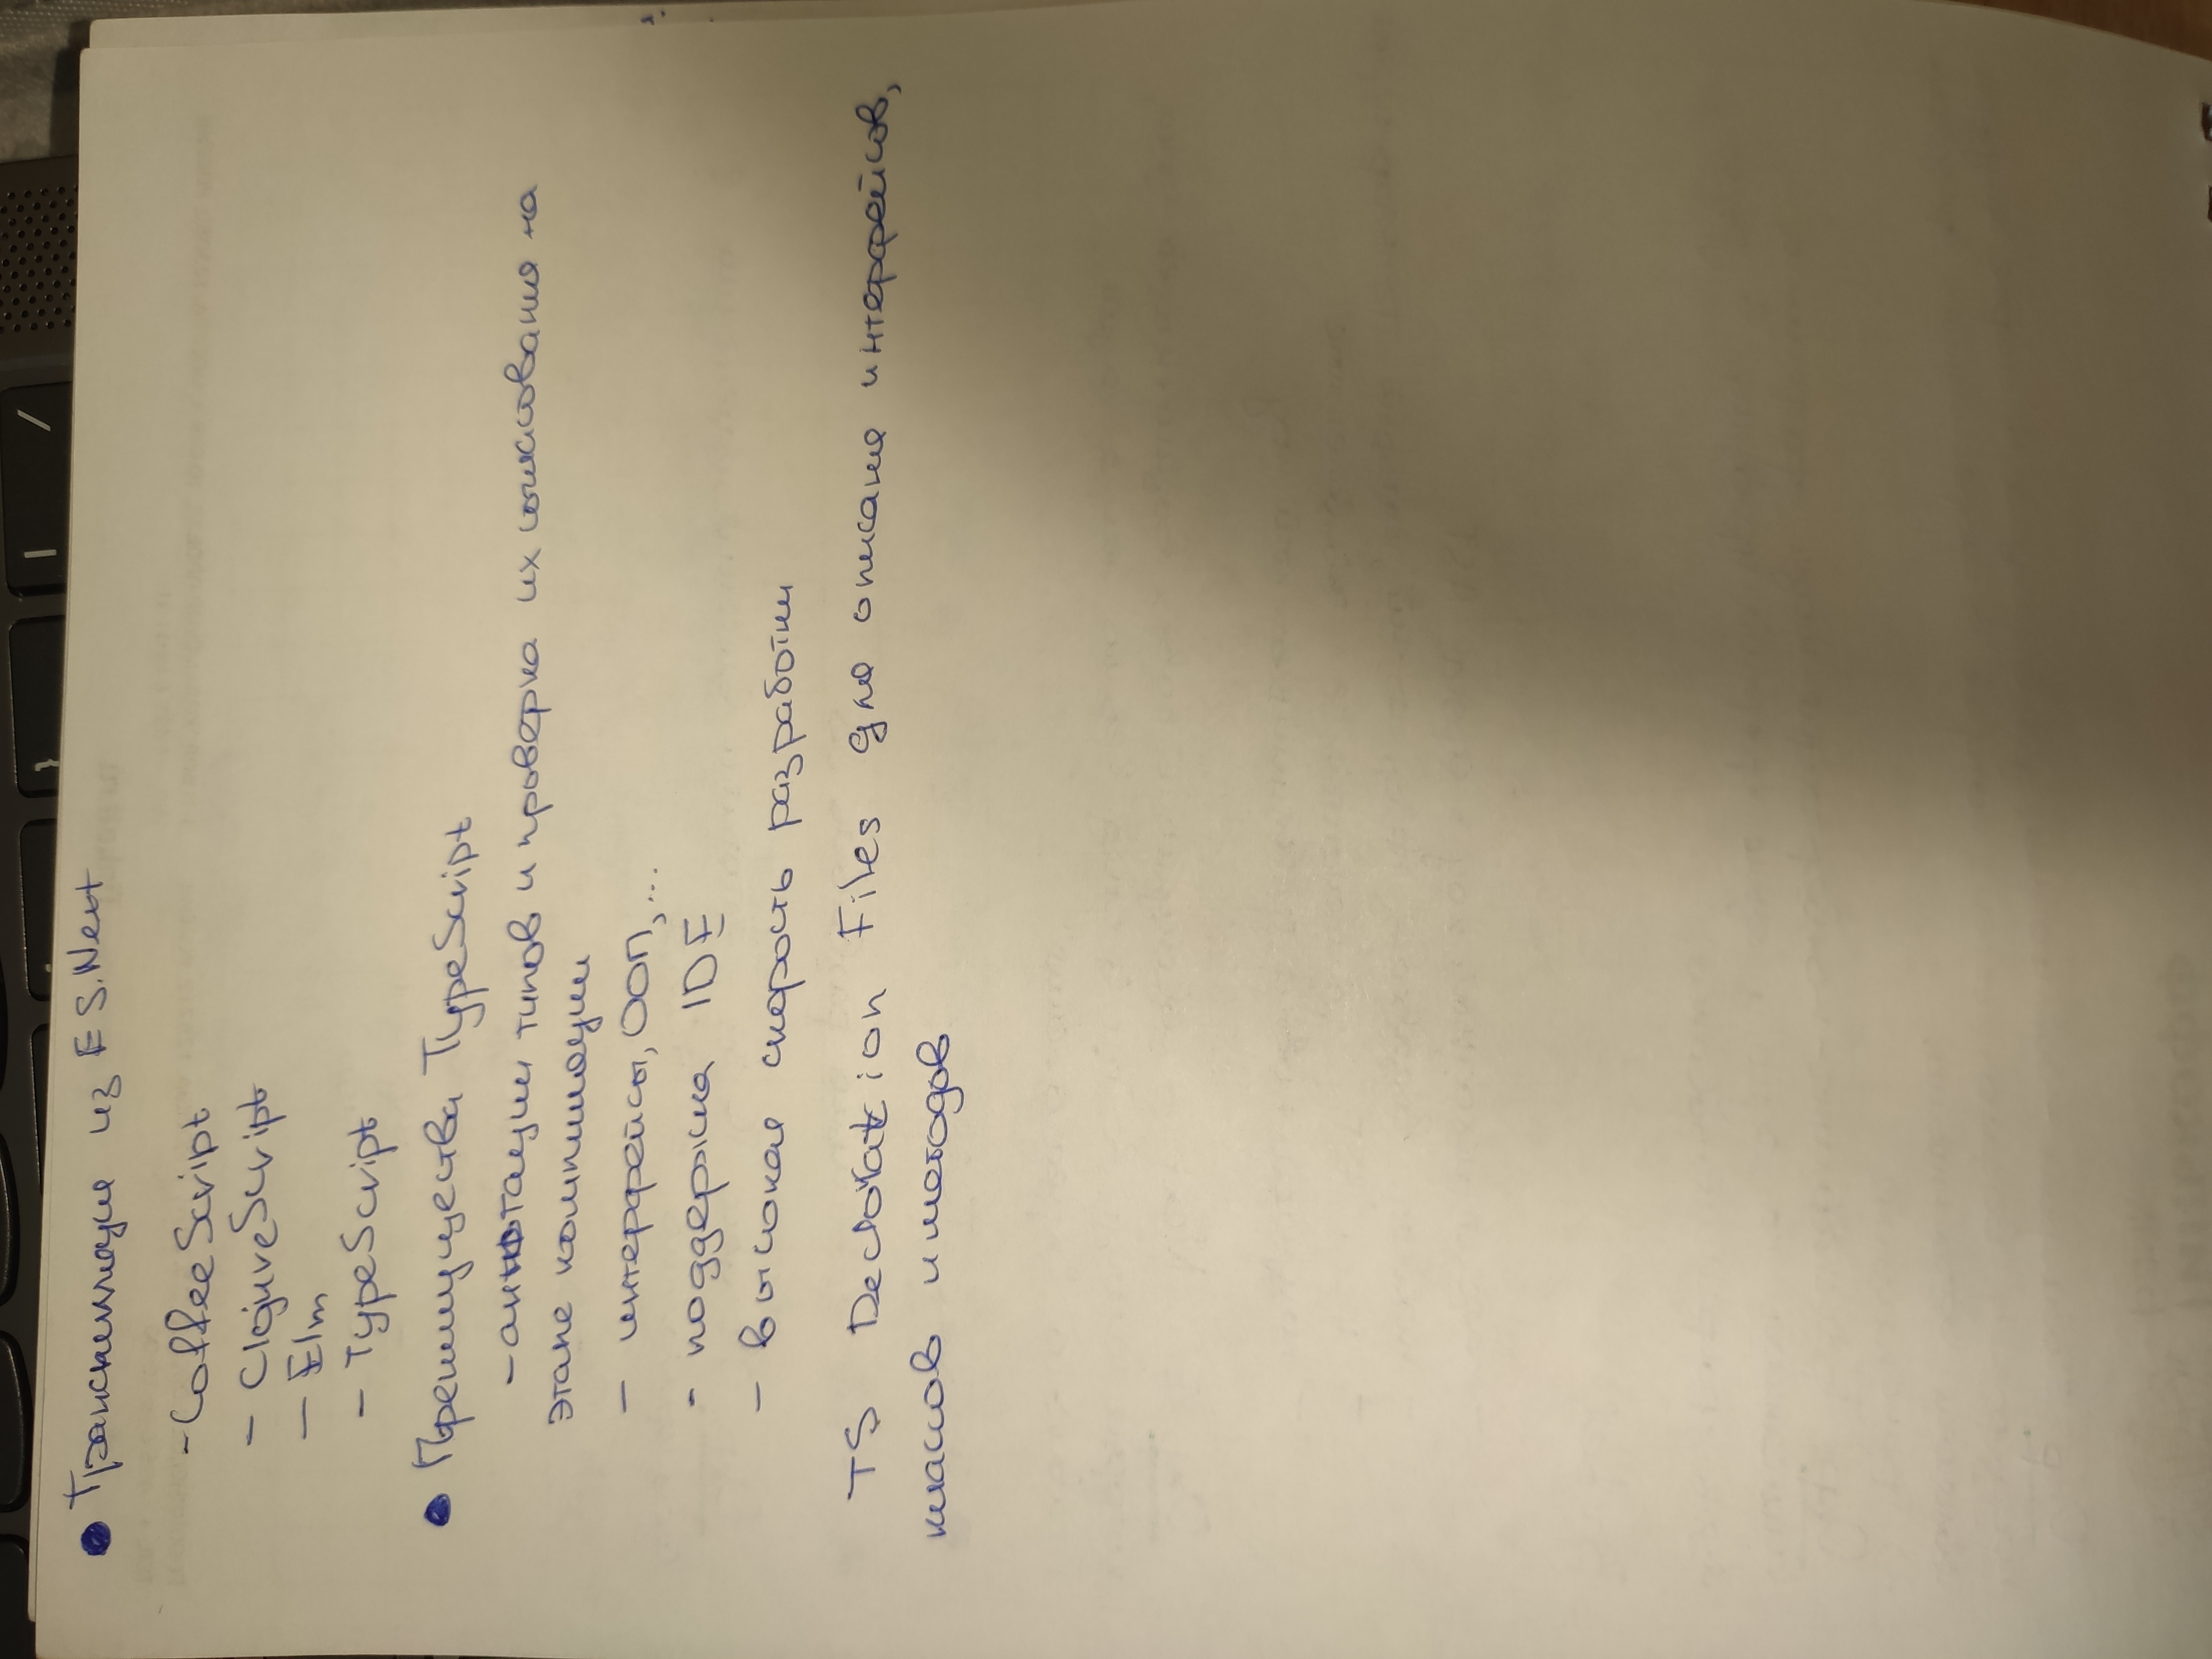 ● Транспиляция из ES.Next
- CoffeeScript
- ClojureScript
- Elm
- TypeScript
● Преимущества TypeScript
- аннотации типов и проверка их согласования на
этапе компиляции
- интерфейсы, ООП, ...
- поддержка IDE
- высокая скорость разработки
TS Declaration Files для описания интерфейсов,
классов и методов